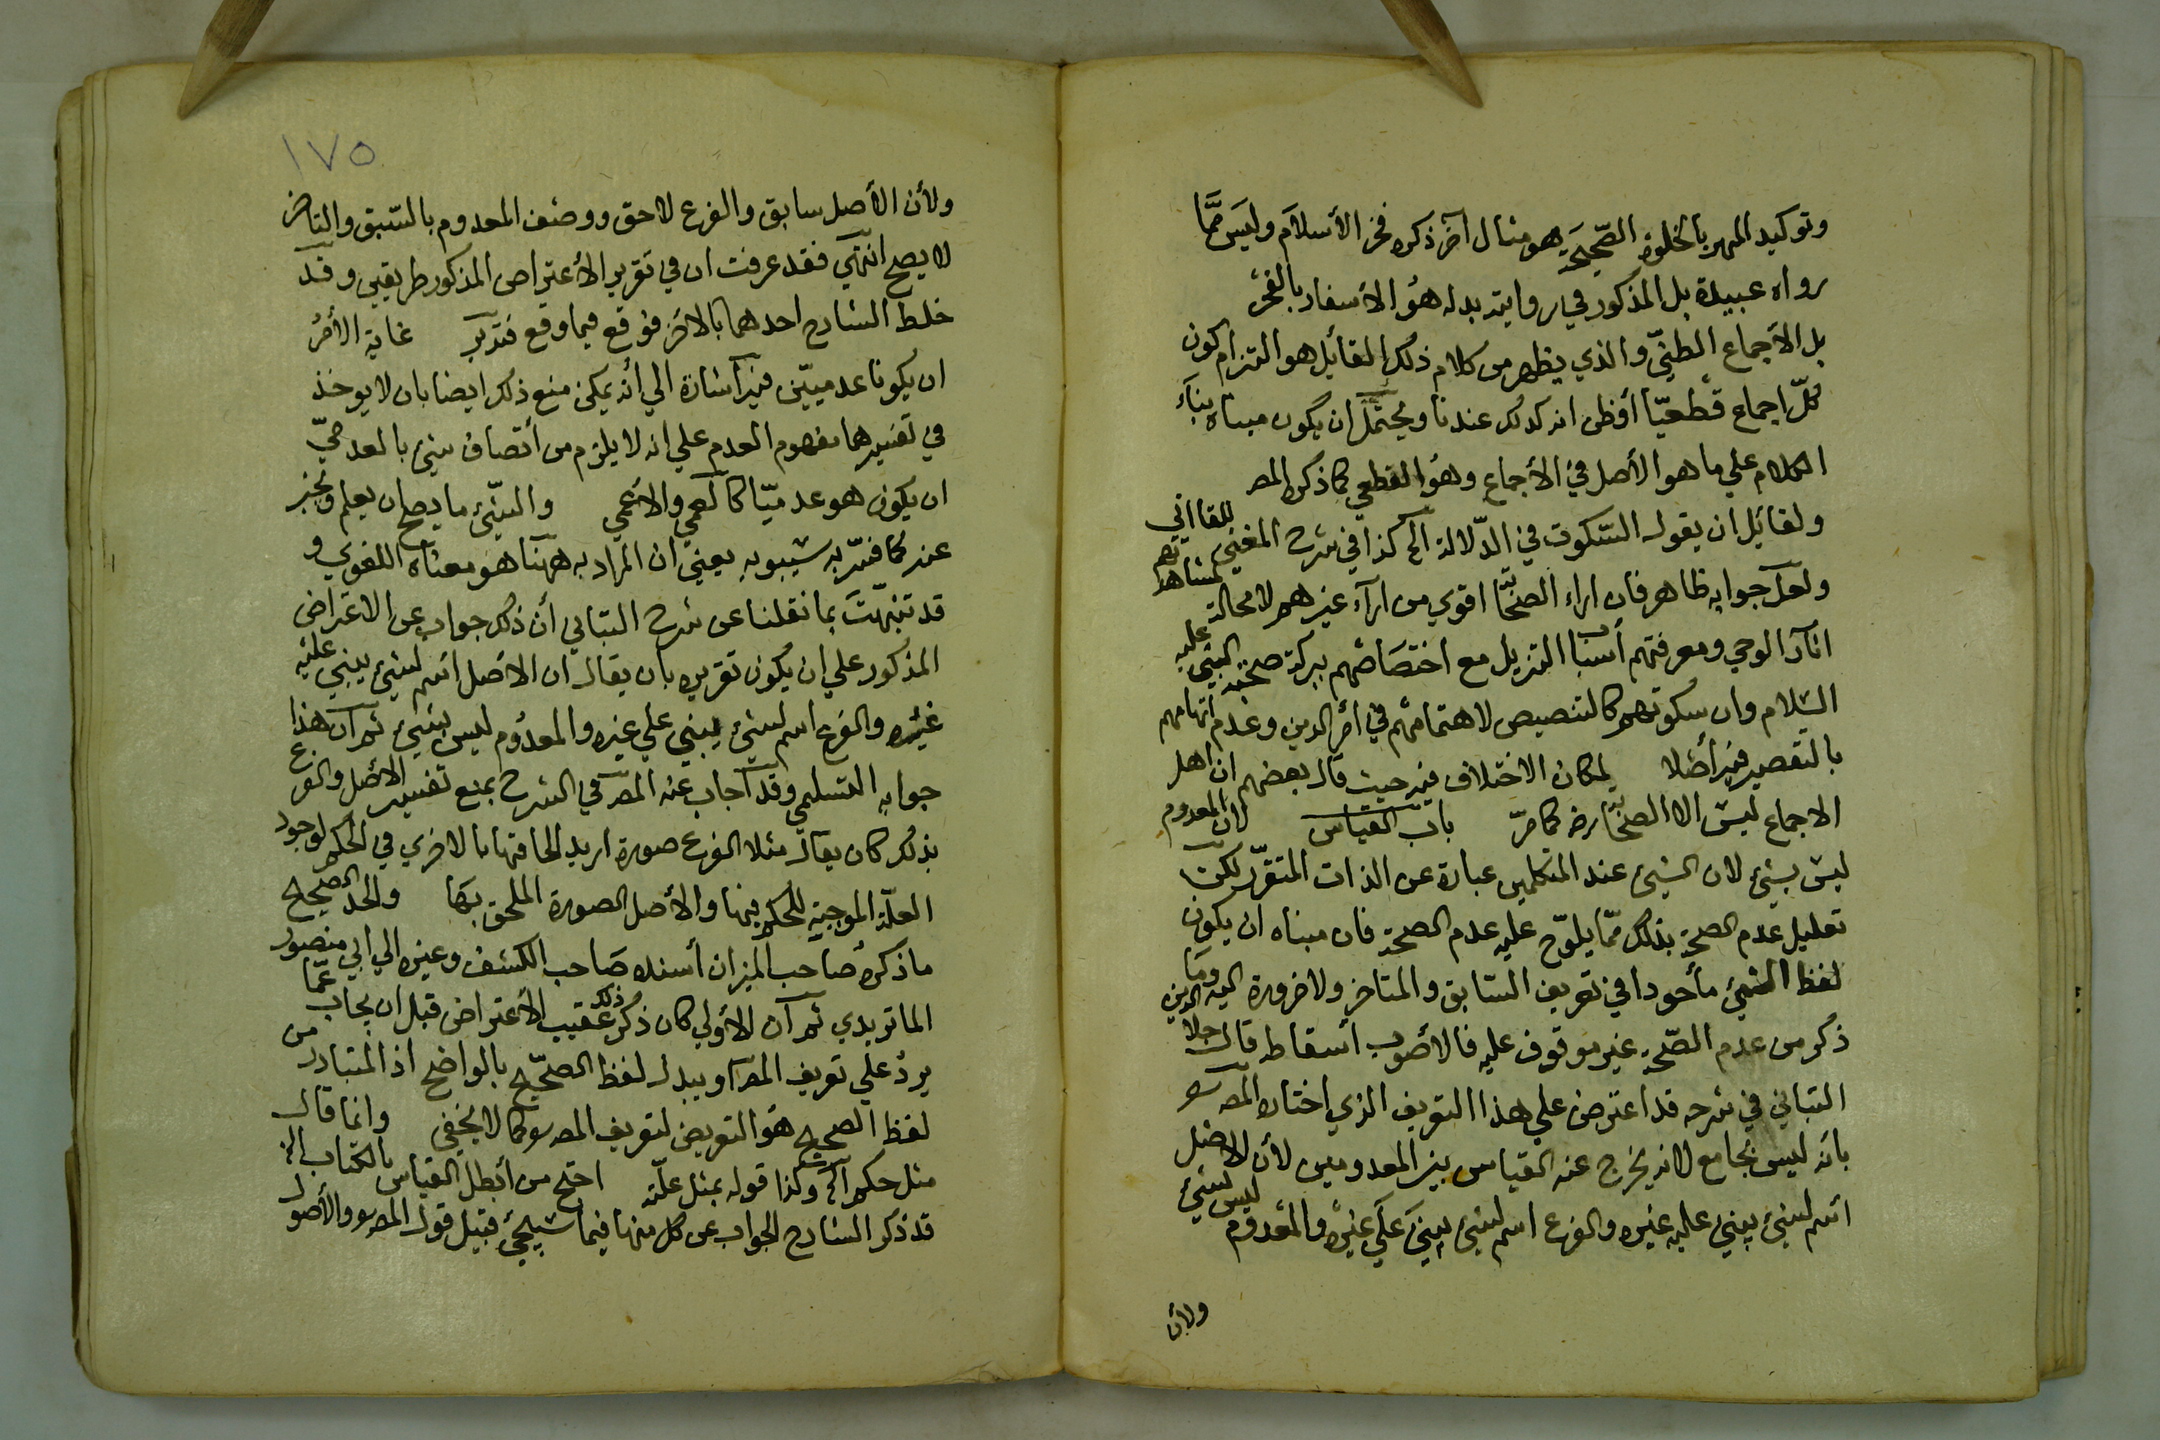 وتوكيد المهر بالخلوة الصحيحة هو مثال آخر ذكره فخر الأسلام وليس مما
رواه عبيدة بل المذكور في روايته بدله هو الاسفار بالفجر
بل الأجماع الظني والذي يظهر من كلام ذلك القائل هو التزام كون
كل اجماع قطعيا أو ظن انه كذلك عندنا ويحتمل ان يكون مبناه بناء
الكلام علي ما هو الأصل في الأجماع وهو القطعي كما ذكره المص
ولقائل ان يقول السكوت في الدلالة الخ كذا في شرح المغني للقاآني
ولعل جوابه ظاهر فان اراء الصحابة اقوي من ارآء غيرهم لا محالة لمشاهدتهم
اثآر الوحي ومعرفتهم أسباب التنزيل مع اختصاصهم ببركة صحبة النبي عليه
السلام وان سكوتهم كالتنصيص لاهتمامهم في أمر الدين وعدم اتهامهم
بالتقصير فيه أصلا لمكان الاختلاف فيه حيث قال بعضهم ان اهل
الاجماع ليس الا الصحابة رضه كما مر باب القياس لان المعدوم
ليس بشئ لان الشيئ عند المتكلمين عبارة عن الذات المتقرر لكن
تعليل عدم الصحة بذلك مما يلوح عليه عدم الصحة فان مبناه ان يكون
لفظ الشئ مأخوذا في تعريف السابق والمتاخر ولا ضرورة اليه وما
ذكر من عدم الصحة غير موقوف عليه فالأصوب أسقاطه قال جلال الدين
التباني في شرحه قد اعترض علي هذا التعريف الذي اختاره المص
بانه ليس بجامع لانه يخرج عنه القياس بين المعدومين لأن الاصل
اسم لشئ يبني عليه غيره والفرع اسم لشئ يبني علي غيره والمعدوم ليس بشئ
ولأن
١٧٥
ولأن الأصل سابق والفرع لاحق ووصف المعدوم بالسبق والتاخر
لا يصح انتهي فقد عرفت ان في تقرير الأعتراض المذكور طريقين وقد
خلط الشارح احدهما بالاخر فوقع فيما وقع فتدبر غاية الأمر
ان يكونا عدميين فيه اشارة الي أنه يمكن منع ذلك ايضا بان لا يوخذ
في تفسيرهما مفهوم العدم علي انه لا يلزم من أتصاف شيئ بالعدمي
ان يكون هو عدميا كالعمي والاعمي والشيئ ما يصح ان يعلم ويخبر
عنه كما فسر به سيبويه يعني ان المراد به ههنا هو معناه اللغوي و
قد تنبهت بما نقلنا عن شرح التباني أن ذلك جواب عن الاعتراض
المذكور علي ان يكون تقريره بان يقال ان الاصل اسم لشيئ يبني عليه
غيره والفرع اسم لشيئ يبني علي غيره والمعدوم ليس بشيئ ثم ان هذا
جوابه التسليمي وقد آجاب عنه المص في الشرح بمنع تفسير الاصل والفرع
بذلك كان يقال مثلا الفرع صورة اريد الحاقها بالاخري في الحكم لوجود
العلة الموجبة للحكم فيها والأصل الصورة الملحق بها والحد الصحيح
ما ذكره صاحب الميزان أسنده صاحب الكشف وغيره الي ابي منصور
الماتريدي ثم ان الأولي كان ذكر ذلك عقيب الأعتراض قبل ان يجاب عما
يرد علي تعريف المص او يبدل لفظ الصحيح بالواضح اذ المتبادر من
لفظ الصحيح هو التعريض لتعريف المص كما لا يخفي وانما قال
مثل حكم الخ وكذا قوله بمثل علته احتج من أبطل القياس بالكتاب الخ
قد ذكر الشارح الجواب عن كل منها فيما سيجئ قبيل قول المص والأصول